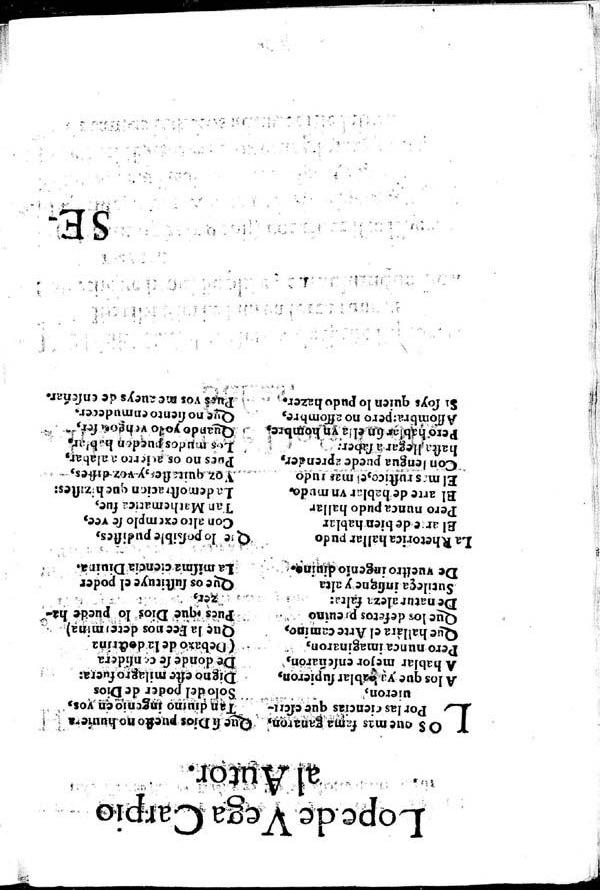 Lope de Vega Carpio
al Autor.
LOS que mas fama ganaron,
Por las ciencias que eſcri-
uieron,
A los que ya hablar ſupieron,
A hablar mejor enſeñaron,
Pero nunca imaginaron,
Que hallàra el Arte camino,
Que los defetos preuino
De naturaleza falta:
Sutileça inſigne y alta
De vueſtro ingenio diuino.
La Rhetorica hallar pudo
El arte de bien hablar
Pero nunca pudo hallar
El arte de hablar vn mudo,
El mas ruſtico, el mas rudo
Con lengua puede aprender,
haſta llegar a ſaber:
Pero hablar ſin ella vn hombre,
Aſſombra: pero no aſſombre,
Si ſoys quien lo pudo hazer.
Que ſi Dios pueſto no huuiera
Tan diuino ingenio en vos,
Solo del poder de Dios
Digno eſte milagro fuera:
De donde ſe conſidera
(Debaxo de la doctrina
Que la Fee nos determina)
Pues que Dios lo puede ha-
zer,
Que os ſuſtituye el poder
La miſma ciencia Diuina.
Que lo poſsible pudiſtes,
Con alto exemplo ſe vee,
Tan Mathematica fue,
La demoſtracion que hiziſtes:
Voz quitaſtes, y voz diſtes,
Pues no os acierto a alabar,
Los mudos pueden hablar,
Quando yo lo vengo a ſer,
Que no ſiento enmudecer,
Pues vos me aueys de enſeñar.
SE-